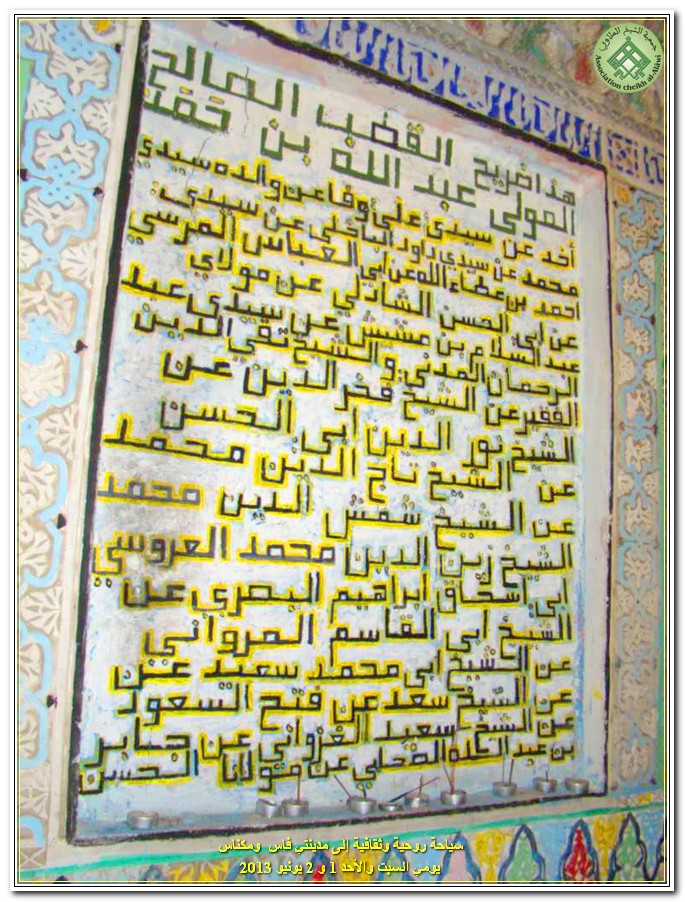 جمعية الشيخ العلاوي
Association cheikh al-Alawi
هذا ضريح القطب الصالح
المولى عبد الله بن حمد
أخد عن سيدي علي وفا عن والده سيدي
محمد عن سيدي داود الباخلي عن سيدي:
احمد بن عطاء الله عن ابي العباس المرسي
عن ابي الحسن الشادلي عن مولاي
عبد السلام بن مشيش عن سيدي عبد
الرحمان المدني: والشيخ تقي الدين
الفقير عن الشيخ فخر الدين عن
الشيخ نور الدين ابي الحسن
عن الشيخ تاج الدين محمد
عن الشيخ شمش الدين محمد
الشيخ زين الدين محمد العروسي
ابي اسحاق ابراهيم البصري عن
الشيخ ابي القاسم المرواني
عن الشيخ ابي محمد سعيد عن
عن الشيخ سعد عن فتح السعود
عن الشيخ سعيد الغزواني عن جابر
بن عبد الله الصحابي عن مولانا الحسن
سياحة روحية وثقافية إلى مدينتي فاس ومكناس
يومي السبت والأحد 1 و 2 يونيو 2013